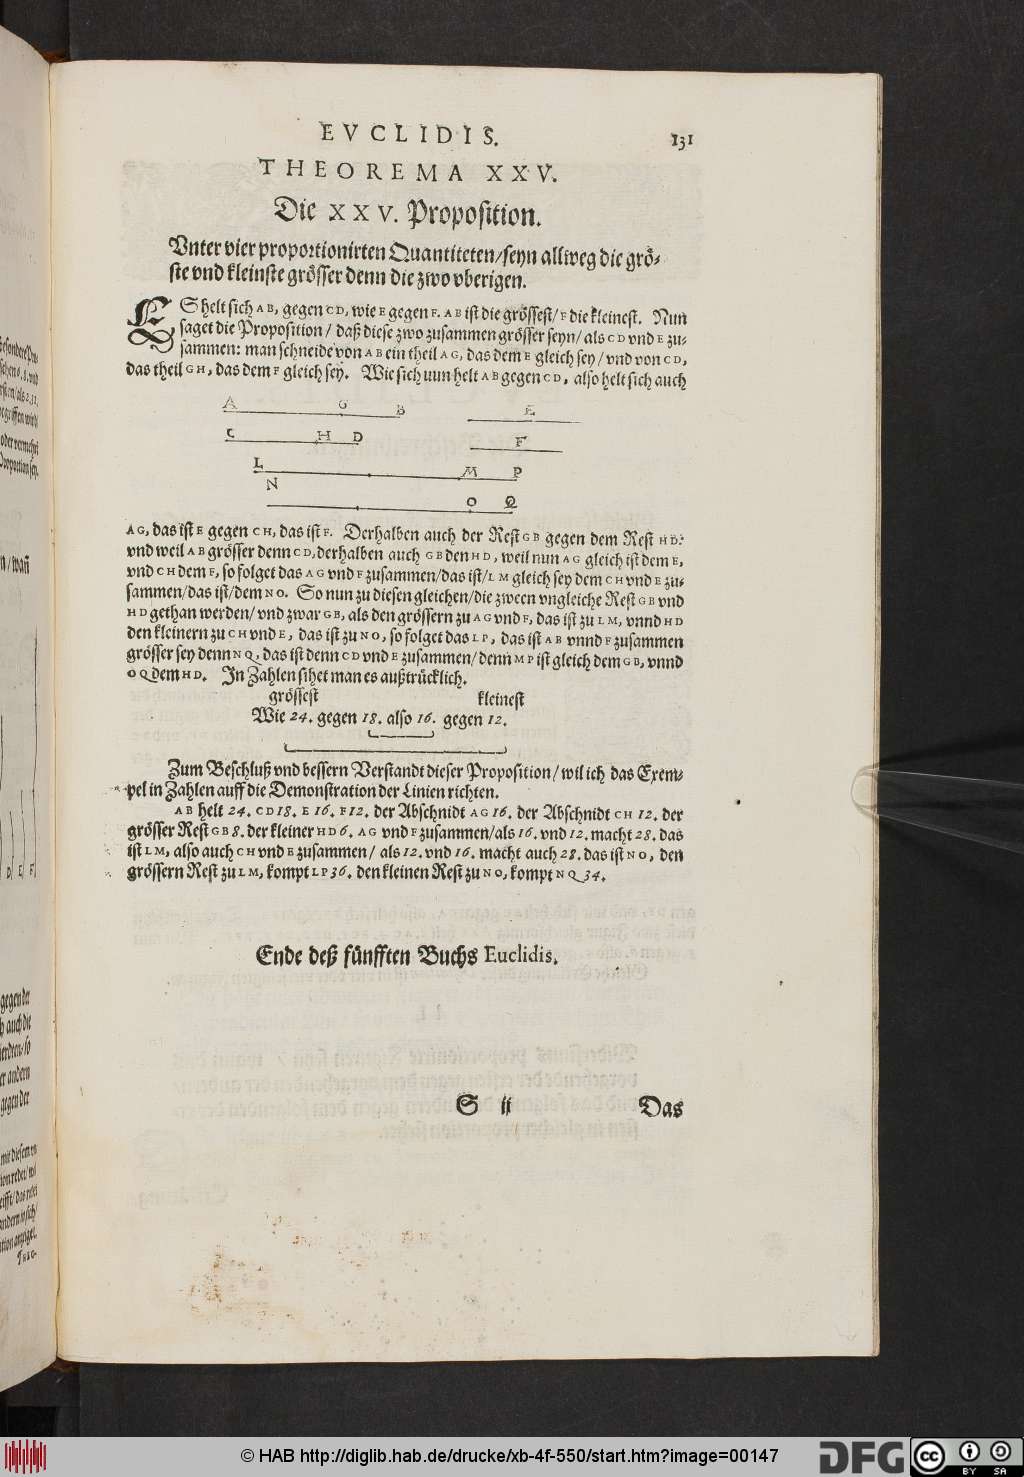 EVCLIDIS. 131
THEOREMA XXV.
Die XXV. Proposition.
Vnter vier proportionirten Quantiteten/seyn allweg die grö-
ste vnd kleinste grösser denn die zwo vberigen.
ES helt sich AB, gegen CD, wie E gegen F. AB ist die grössest/ F die kleinest. Nun
saget die Proposition / daß diese zwo zusammen grösser seyn/ als CD vnd E zu-
sammen: man schneide von AB ein theil AG, das dem E gleich sey / vnd von CD,
das theil GH, das dem F gleich sey. Wie sich uun helt AB gegen CD, also helt sich auch
A G B E
C H D F
L M P
N O Q
AG, das ist E gegen CH, das ist F. Derhalben auch der Rest GB gegen dem Rest HD:
vnd weil AB grösser denn CD, derhalben auch GB den HD, weil nun AG gleich ist dem E,
vnd CH dem F, so folget das AG vnd F zusammen/das ist/LM gleich sey dem CH vnd E zu-
sammen/das ist/dem NO. So nun zu diesen gleichen/die zween vngleiche Rest GB vnd
HD gethan werden/ vnd zwar GB, als den grössern zu AG vnd F, das ist zu LM, vnnd HD
den kleinern zu CH vnd E, das ist zu NO, so folget das LP, das ist AB vnnd F zusammen
grösser sey denn NQ, das ist denn CD vnd E zusammen/ denn MP ist gleich dem GB, vnnd
OQ dem HD. In Zahlen sihet man es außtrücklich.
grössest kleinest
Wie 24. gegen 18. also 16. gegen 12.
Zum Beschluß vnd bessern Verstandt dieser Proposition / wil ich das Exem-
pel in Zahlen auff die Demonstration der Linien richten.
AB helt 24. CD 18. E 16. F 12. der Abschnidt AG 16. der Abschnidt CH 12. der
grösser Rest GB 8. der kleiner HD 6. AG vnd F zusammen/als 16. vnd 12. macht 28. das
ist LM, also auch CH vnd E zusammen / als 12. vnd 16. macht auch 28. das ist NO, den
grössern Rest zu LM, kompt LP 36. den kleinen Rest zu NO, kompt NQ 34.
Ende deß fünfften Buchs Euclidis.
S ij Das
© HAB http://diglib.hab.de/drucke/xb-4f-550/start.htm?image=00147
DFG
cc BY SA